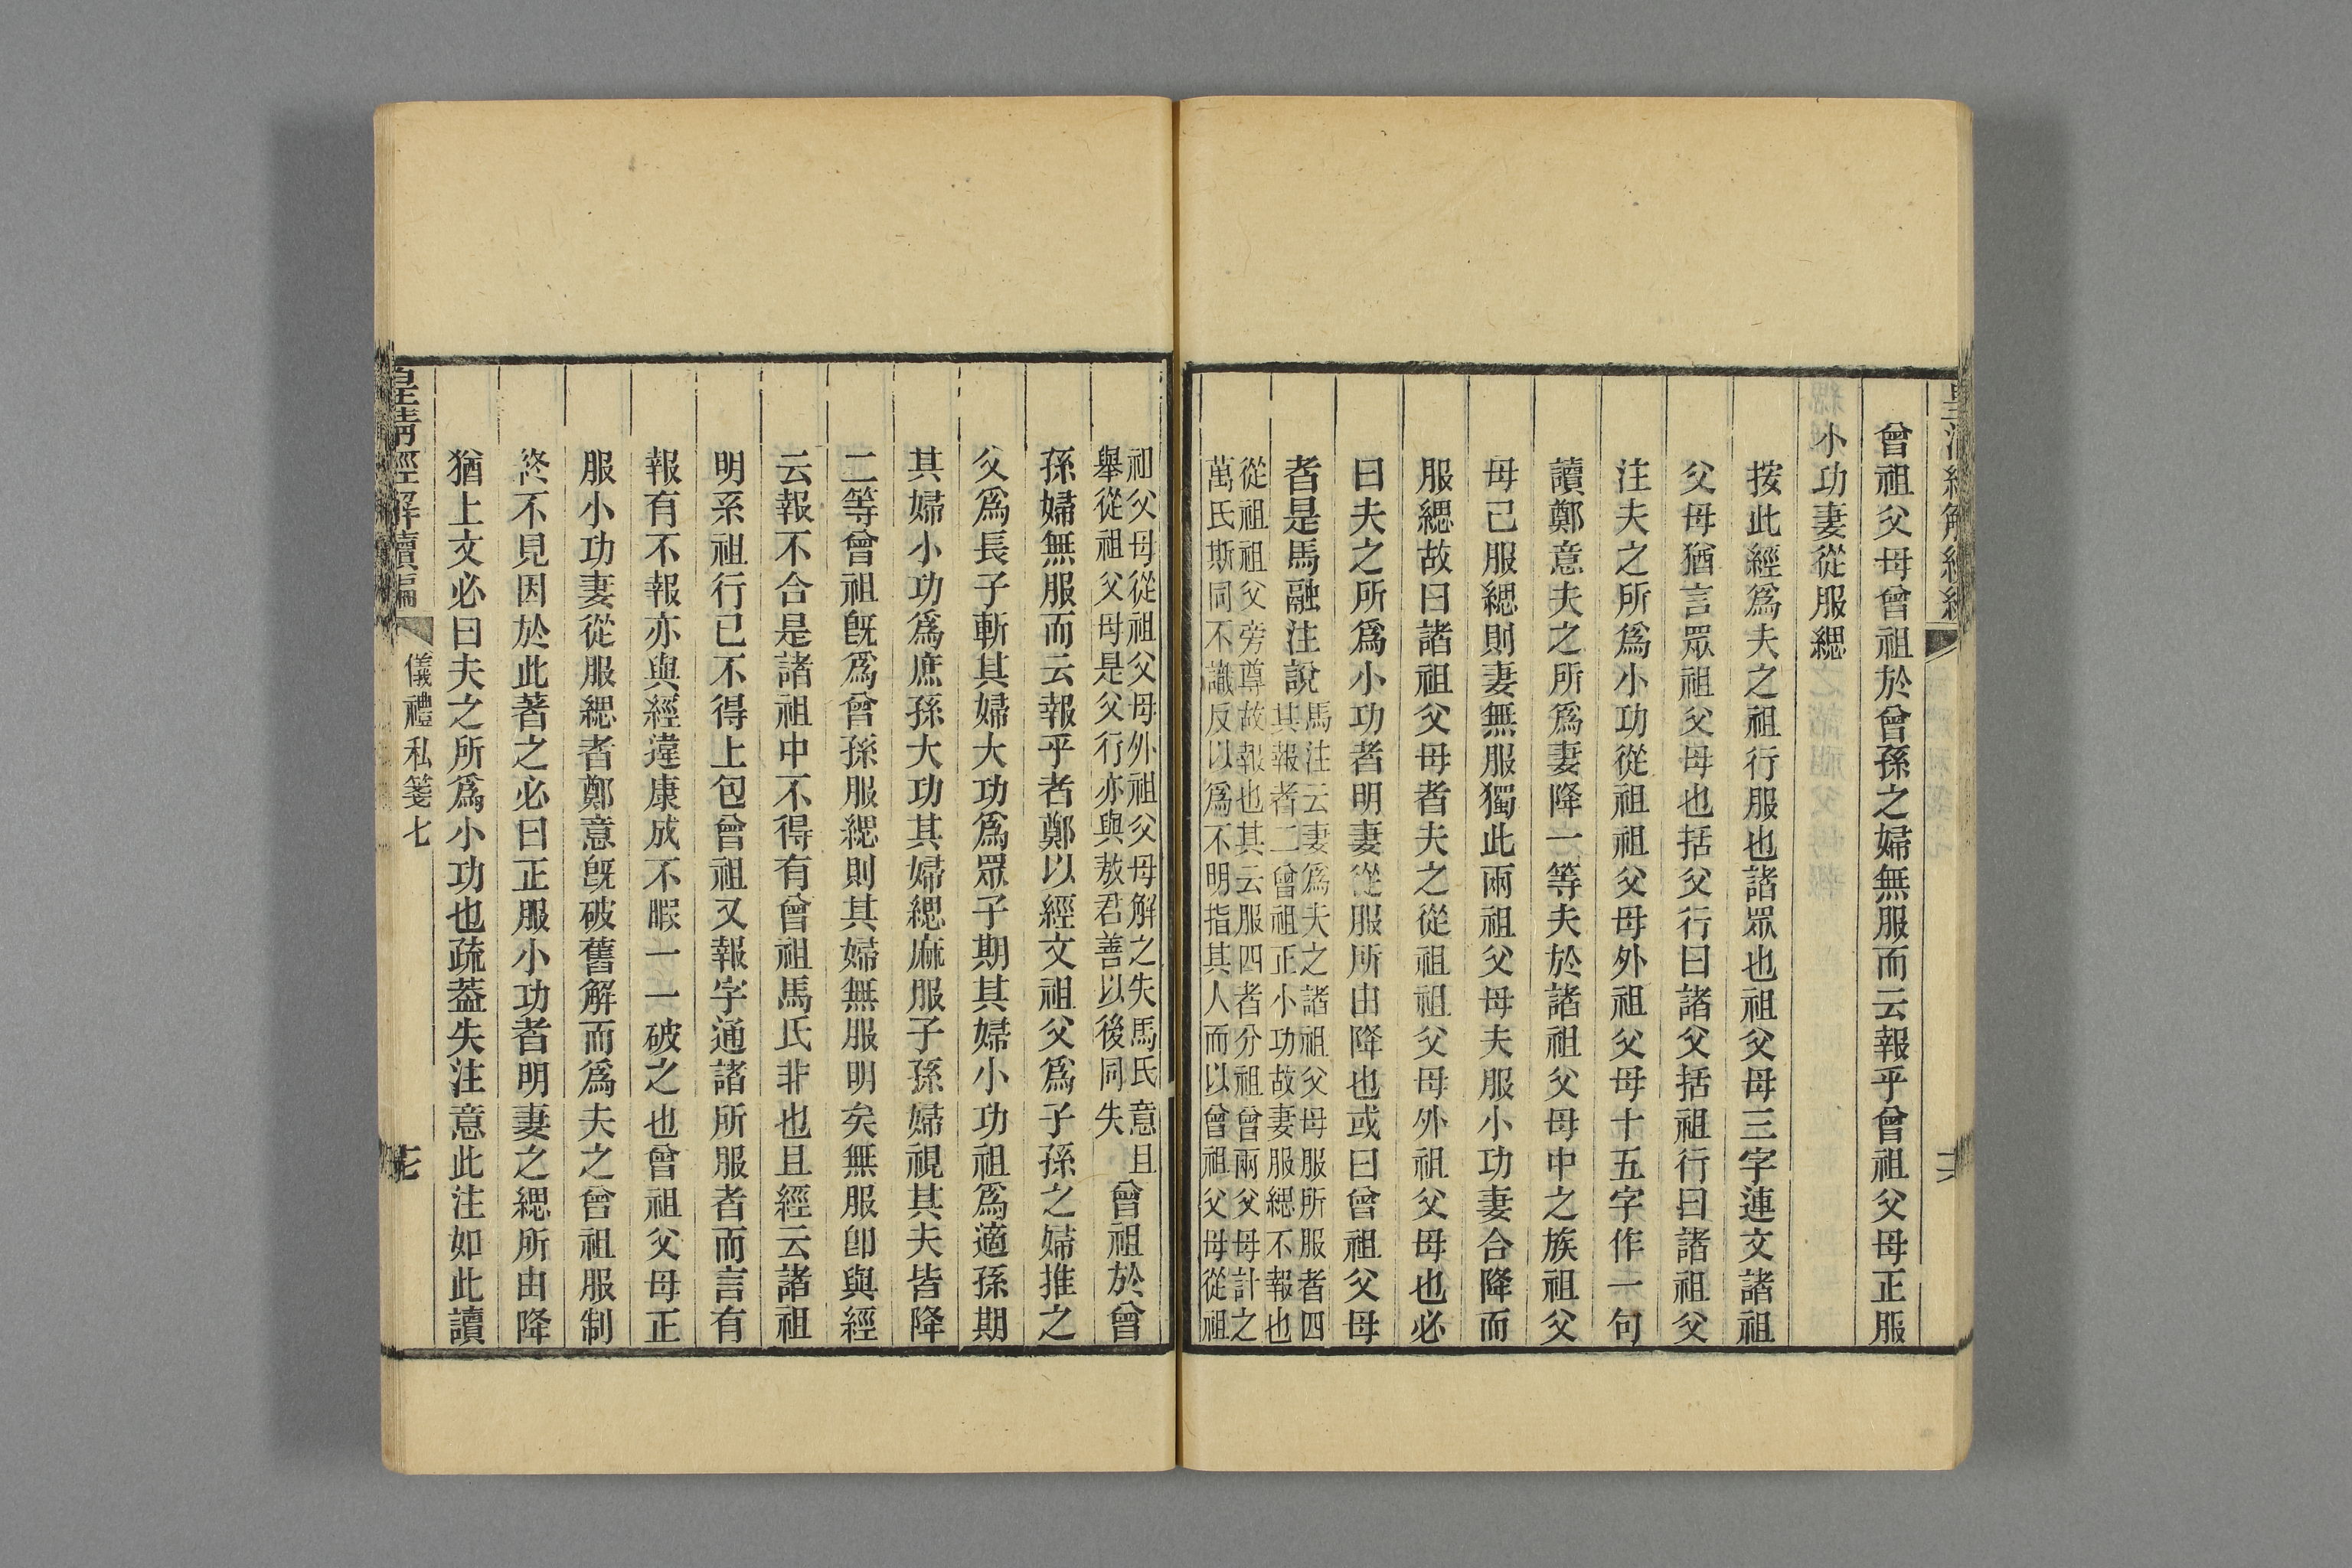 曾祖父母曾祖於曾孫之婦無服而云報乎曾祖父母正服
小功妻從服緦
按此經爲夫之祖行服也諸眾也祖父母三字連文諸祖
父母猶言眾祖父母也括父行曰諸父括祖行曰諸祖父
注夫之所爲小功從祖祖父母外祖父母十五字作一句
讀鄭意夫之所爲妻降一等夫於諸祖父母中之族祖父
母已服緦則妻無服獨此兩祖父母夫服小功妻合降而
服緦故曰諸祖父母者夫之從祖祖父母外祖父母也必
曰夫之所爲小功者明妻從服所由降也或曰曾祖父母
者是馬融注說
馬注云妻爲夫之諸祖父母服所服者四
其報者二曾祖正小功故妻服緦不報也
從祖祖父旁尊故報也其云服四者分祖曾兩父母計之
萬氏斯同不識反以爲不明指其人而以曾祖父母從祖
祖父母從祖父母外祖父母解之失馬氏意且
舉從祖父母是父行亦與敖君善以後同失
曾祖於曾
孫婦無服而云報乎者鄭以經文祖父爲子孫之婦推之
父爲長子斬其婦大功爲眾子期其婦小功祖爲適孫期
其婦小功爲庶孫大功其婦緦麻服子孫婦視其夫皆降
二等曾祖旣爲曾孫服緦則其婦無服明矣無服卽與經
云報不合是諸祖中不得有曾祖馬氏非也且經云諸祖
明系祖行已不得上包曾祖又報字通諸所服者而言有
報有不報亦與經違康成不暇一一破之也曾祖父母正
服小功妻從服緦者鄭意旣破舊解而爲夫之曾祖服制
終不見因於此著之必曰正服小功者明妻之緦所由降
猶上文必曰夫之所爲小功也疏葢失注意此注如此讀
皇清經解續編
儀禮私箋七